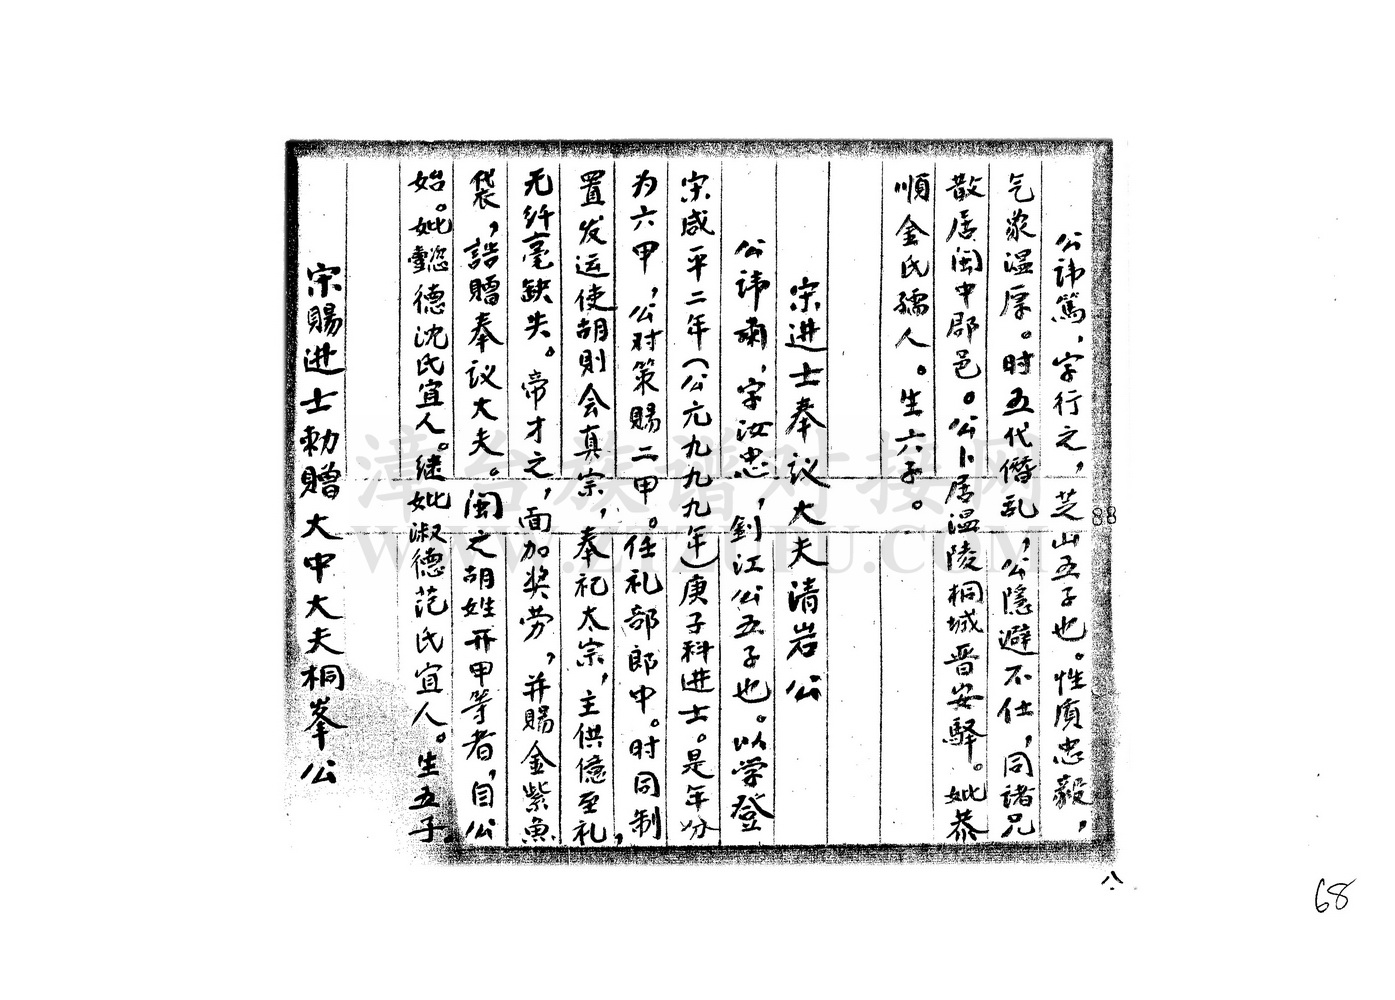 公讳篤，字行之，芝山五子也。性质忠毅，
气象温厚。时五代僭乱，公隐避不仕，同諸兄
散居闽中郡邑。公卜居温陵桐城晋安驿。妣恭
顺金氏孺人。生六子。
宋进士奉议大夫清岩公
公讳肃，字汝忠，釗江公五子也。以学登
宋咸平二年（公元九九九年）庚子科进士。是年分
为六甲，公对策赐二甲。任礼部郎中。时同制
置发运使胡则会真宗，奉祀太宗，主供億至礼，
无纤毫缺失。帝才之，面加奖劳，并赐金紫魚
袋，誥赠奉议大夫。闽之胡姓开甲等者，自公
始。妣懿德沈氏宜人。继妣淑德范氏宜人。生五子。
宋赐进士勅赠大中大夫桐峯公
88
八
68
漳台族谱对接网
WWW.ZTZUPU.COM